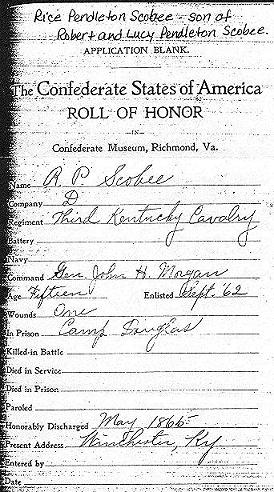 Rice Pendleton Scobee - son of
Robert and Lucy Pendleton Scobee.
APPLICATION BLANK.
The Confederate States of America
ROLL OF HONOR
—IN—
Confederate Museum, Richmond, Va.
Name R. P. Scobee
Company D
Regiment Third Kentucky Cavalry
Battery
Navy
Command Gen John H. Morgan
Age Fifteen Enlisted Sept. '62
Wounds One
In Prison Camp Douglas
Killed-in Battle
Died in Service
Died in Prison
Paroled
Honorably Discharged May 1865
Present Address Winchester, Ky
Entered by
Date